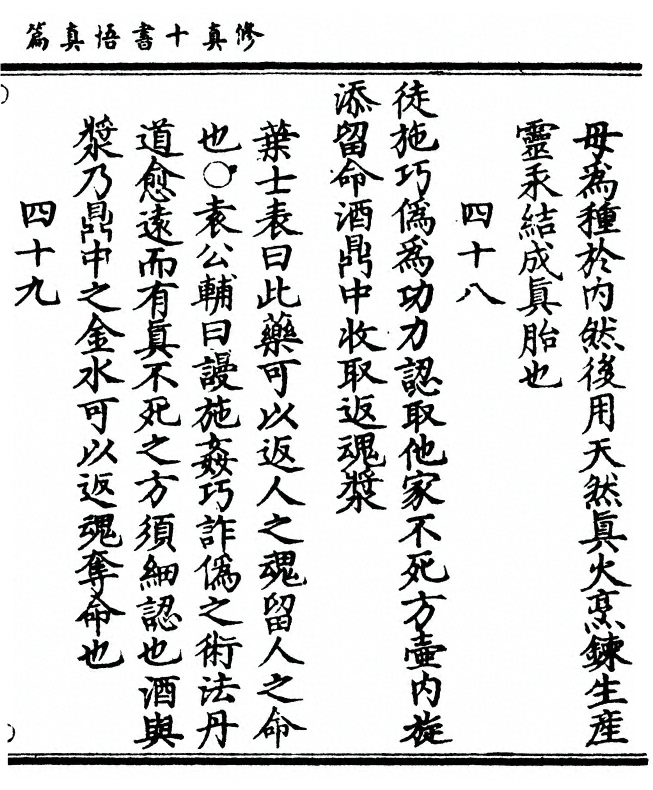 修真十書悟真篇
母為種於內然後用天然眞火烹鍊生産
靈汞結成眞胎也
四十八
徒施巧偽為功力認取他家不死方壷內旋
添留命酒鼎中收取返魂漿
葉士表曰此藥可以返人之魂留人之命
也○袁公輔曰謾施姦巧詐偽之術法丹
道愈遠而有眞不死之方須細認也酒與
漿乃鼎中之金水可以返魂奪命也
四十九